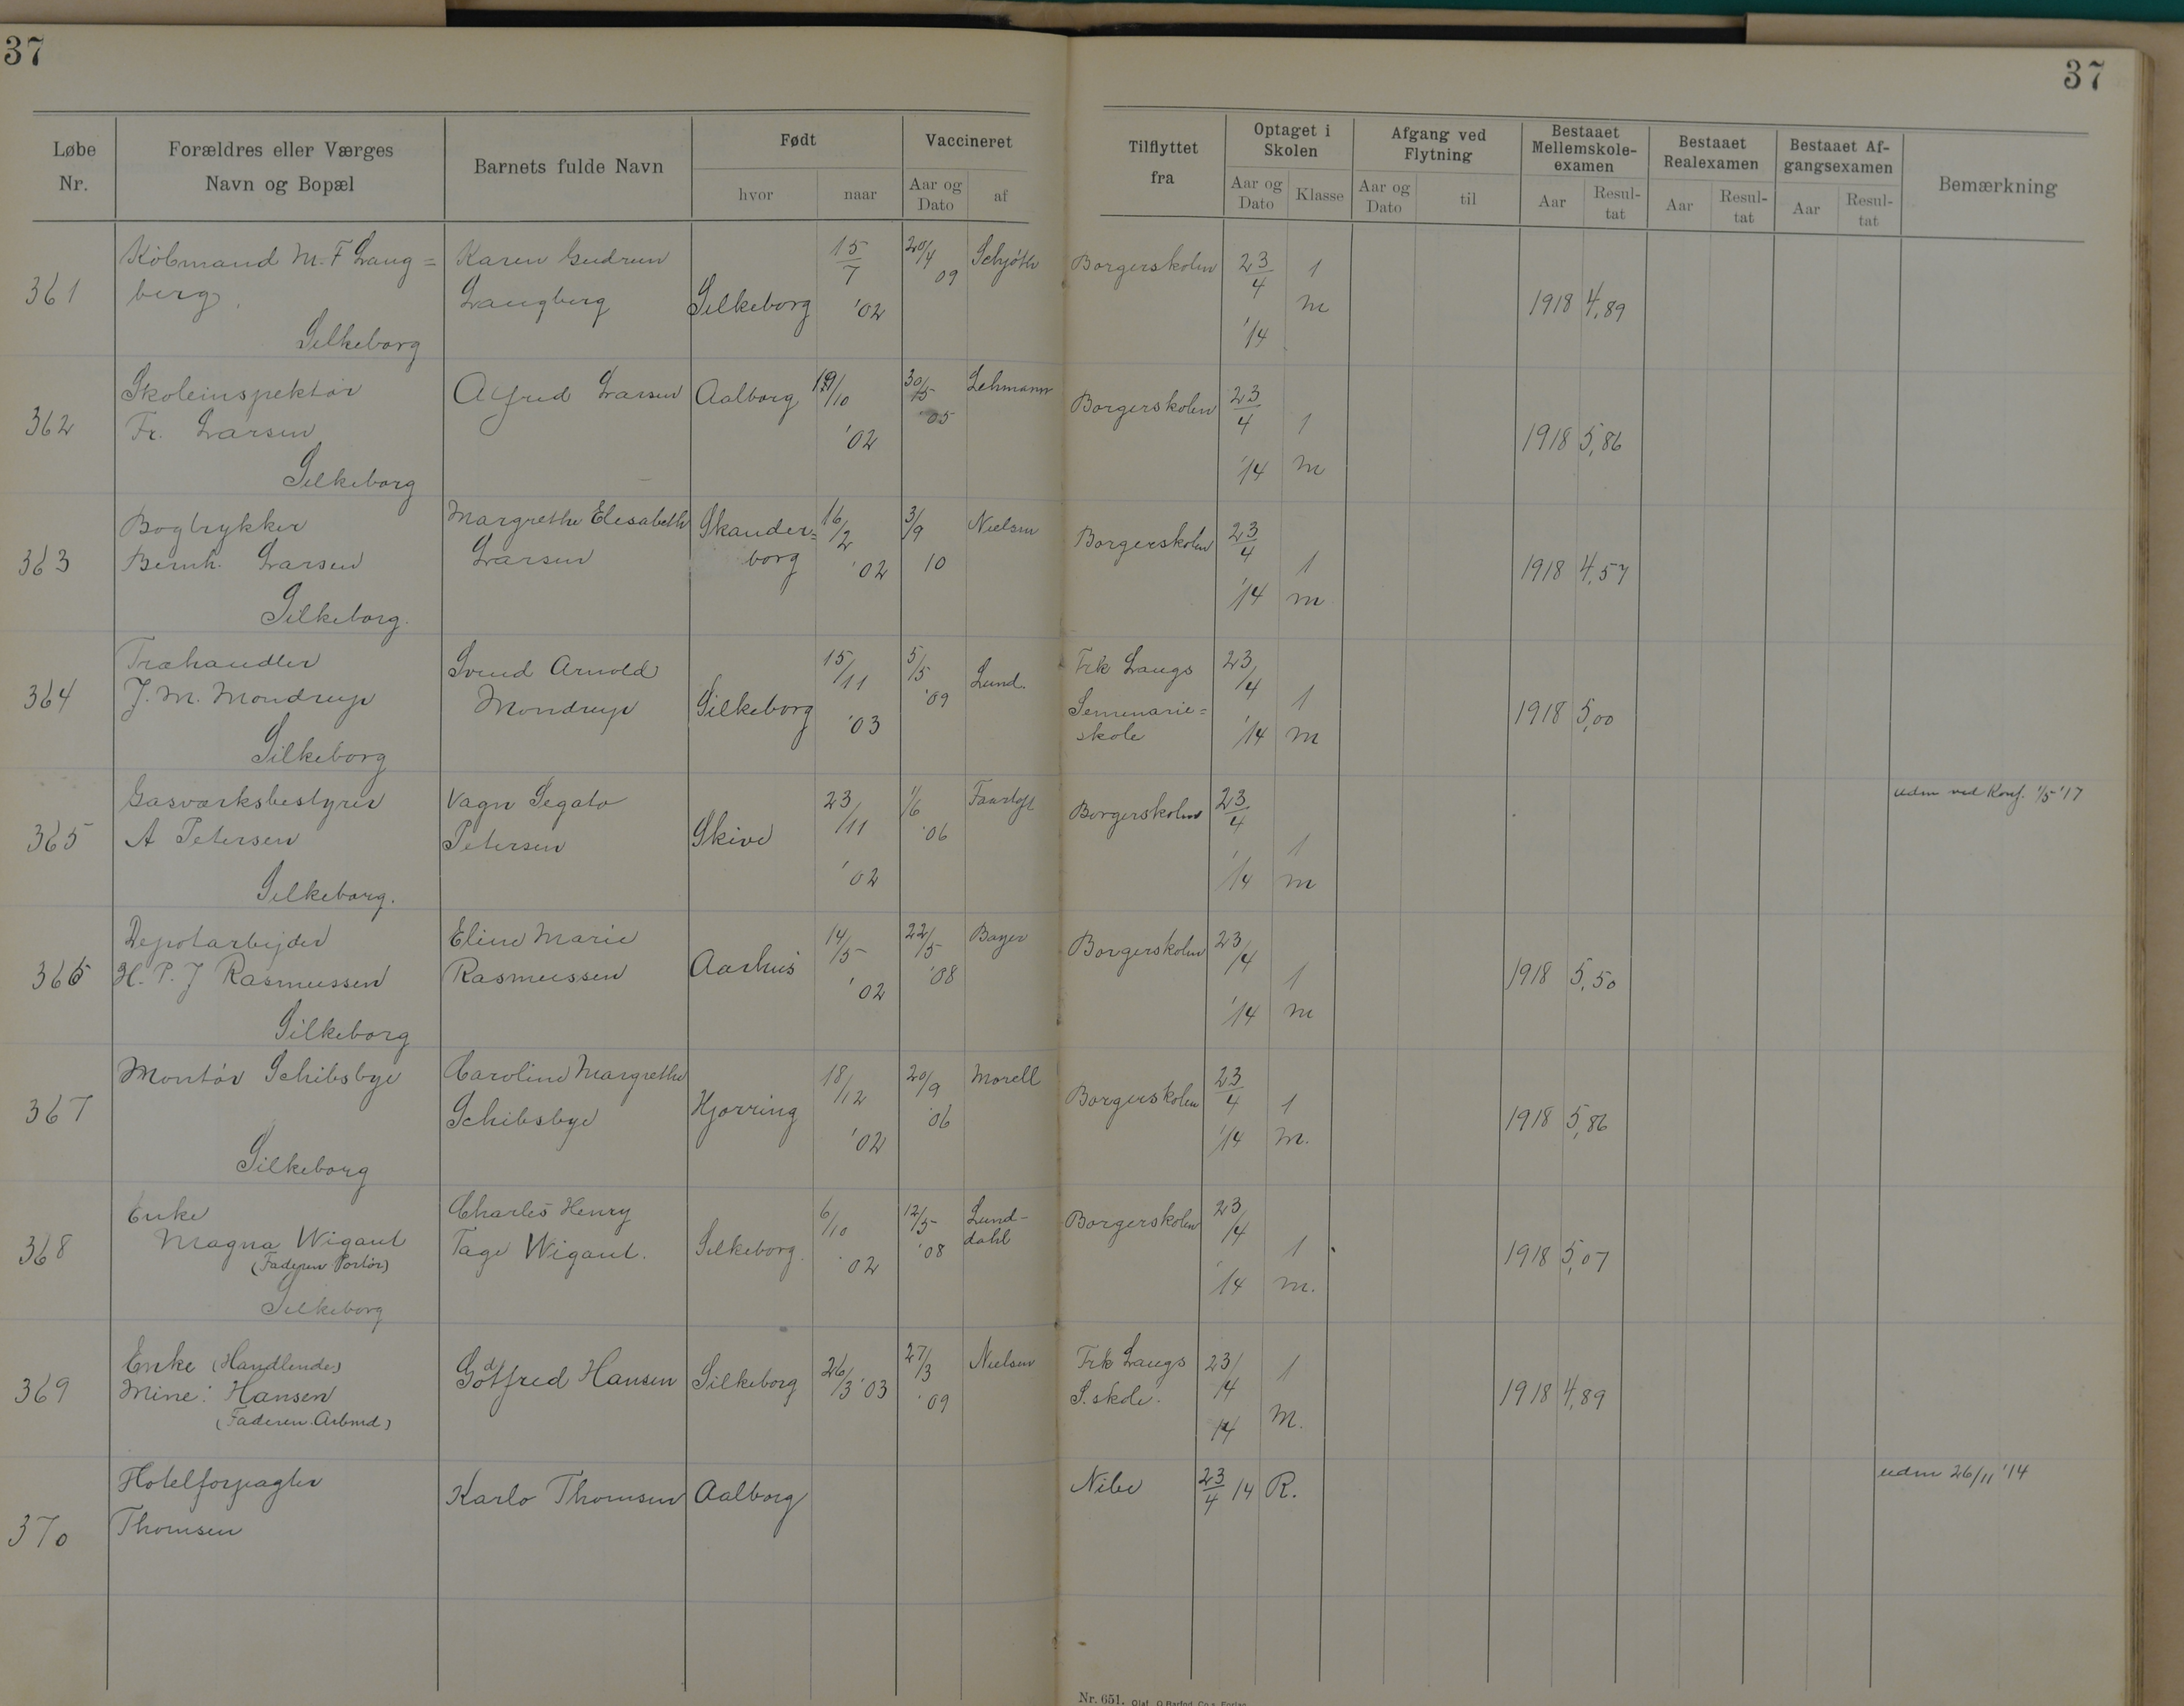 37
37
Løbe Nr.
Forældres eller Værges Navn og Bopæl
Barnets fulde Navn
Født
hvor
naar
Vaccineret
Aar og Dato
af
Tilflyttet fra
Optaget i Skolen
Aar og Dato
Klasse
Afgang ved Flytning
Aar og Dato
til
Bestaaet Mellemskole-examen
Aar
Resul-tat
Bestaaet Realexamen
Aar
Resul-tat
Bestaaet Af-gangsexamen
Aar
Resul-tat
Bemærkning
361 Købmand M. F Lang= Karen Gudrun 15/7 20/4 09 Schjøth Borgerskolen 23/4 1
berg. Langberg Silkeborg '02 m 1918 4,89
Silkeborg '14
362 Skoleinspektør Alfred Larsen Aalborg 19/10 30/5 '05 Lehmann Borgerskolen 23/4 1
Fr. Larsen '02 1918 5,86
Silkeborg '14 m
363 Bogtrykker Margrethe Elisabeth Skander= 16/2 3/9 Nielsen Borgerskolen 23/4 1
Bernh. Larsen Larsen borg '02 10 1918 4,57
Silkeborg. '14 m
364 Træhandler Svend Arnold 15/11 5/5 '09 Lund. Frk Langs 23/4 1
J. M. Mondrup Mondrup Silkeborg '03 Seminarie= 1918 5,00
Silkeborg skole '14 m
365 Gasværksbestyrer Vagn Segato 23/11 1/6 '06 Borgerskolen 23/4 1 udm ved Konf. 1/5 '17
A Petersen Petersen Skive '02
Silkeborg. '14 m
366 Depotarbejder Eline Marie 14/5 22/5 '08 Bayer Borgerskolen 23/4 1
H. P. J Rasmussen Rasmussen Aarhus '02 1918 5,50
Silkeborg '14 m
367 Montør Schibsbye Caroline Margrethe 18/12 20/9 '06 Morell Borgerskolen 23/4 1
Schibsbye Hjørring '02 1918 5,86
Silkeborg '14 m.
368 Enke Charles Henry 6/10 12/5 '08 Lund- Borgerskolen 23/4 1
Magna Wigant Tage Wigant. Silkeborg. '02 dahl 1918 5,07
(Faderen Portør)
Silkeborg '14 m.
369 Enke (Handlende) Godtfred Hansen Silkeborg 26/3 '03 27/3 '09 Nielsen Frk Langs 23/4 1
Mine: Hansen S. skole. 14 M. 1918 4,89
(Faderen. Arbmd)
370 Hotelforpagter Karlo Thomsen Aalborg Nibe 23/4 14 R. udm 26/11 '14
Thomsen
Nr. 651.